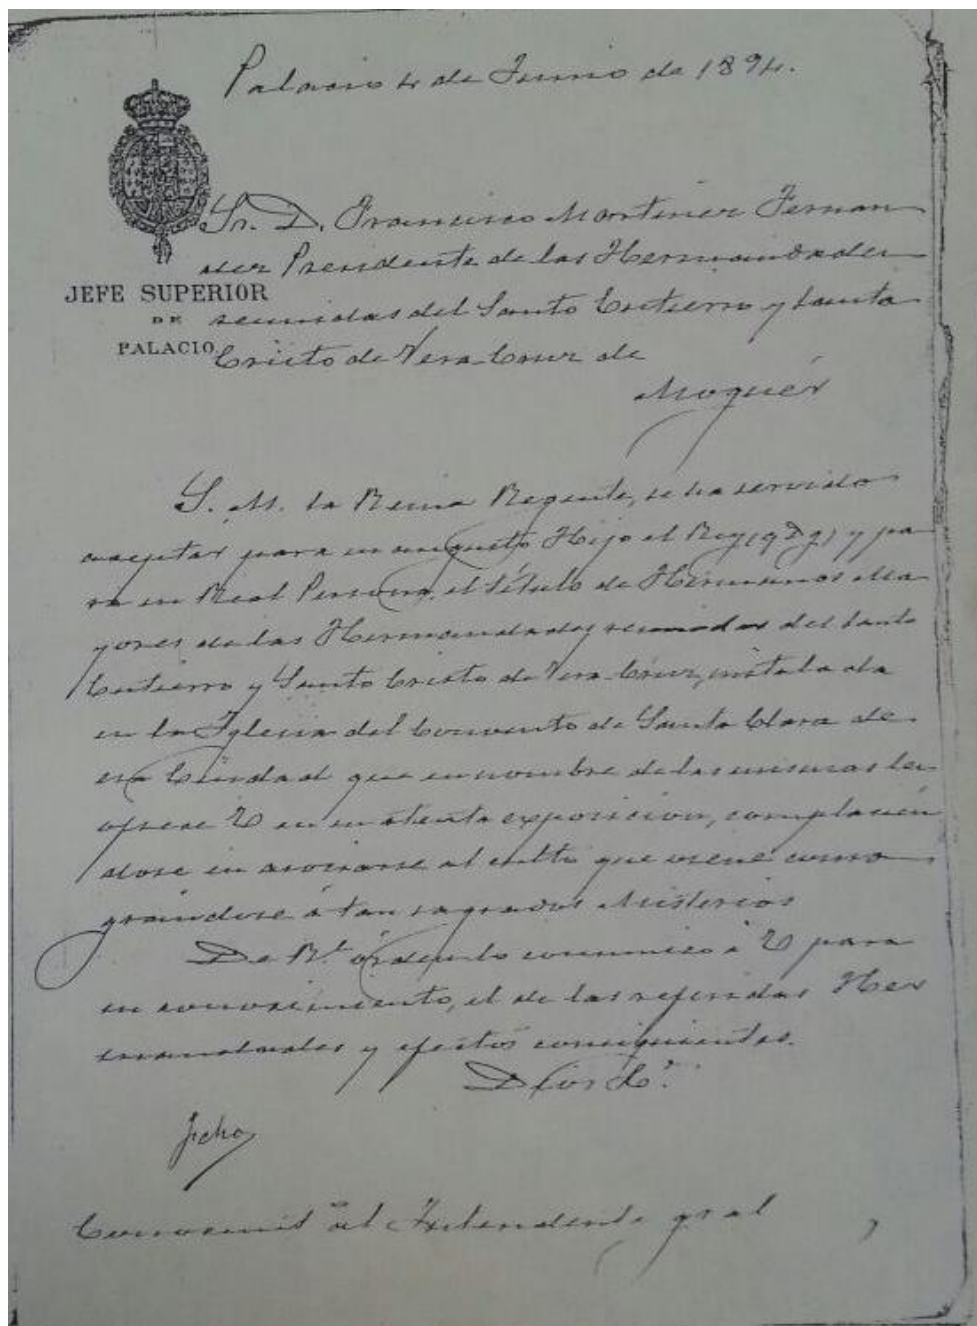 Palacio 4 de Junio de 1894.
JEFE SUPERIOR
DE
PALACIO
Sr. D. Francisco Martinez Fernan
dez Presidente de las Hermandades
reunidas del Santo Entierro y Santo
Cristo de Vera Cruz de
Moguér
S. M. la Reina Regente, se ha servido
aceptar para su augusto Hijo el Rey (q D g) y pa
ra su Real Persona, el título de Hermanos Ma
yores de las Hermandades reunidas del Santo
Entierro y Santo Cristo de Vera Cruz, instalada
en la Iglesia del Convento de Santa Clara de
esa Ciudad que en nombre de las mismas les
ofrece V en su atenta exposicion, complacien
dose en asociarse al culto que viene consa
grandose á tan sagrados Misterios
De Rl. órden lo comunico á V para
su conocimiento, el de las referidas Her
mandades y efectos consiguientes.
Dios &.
fcho
al Intendente gral